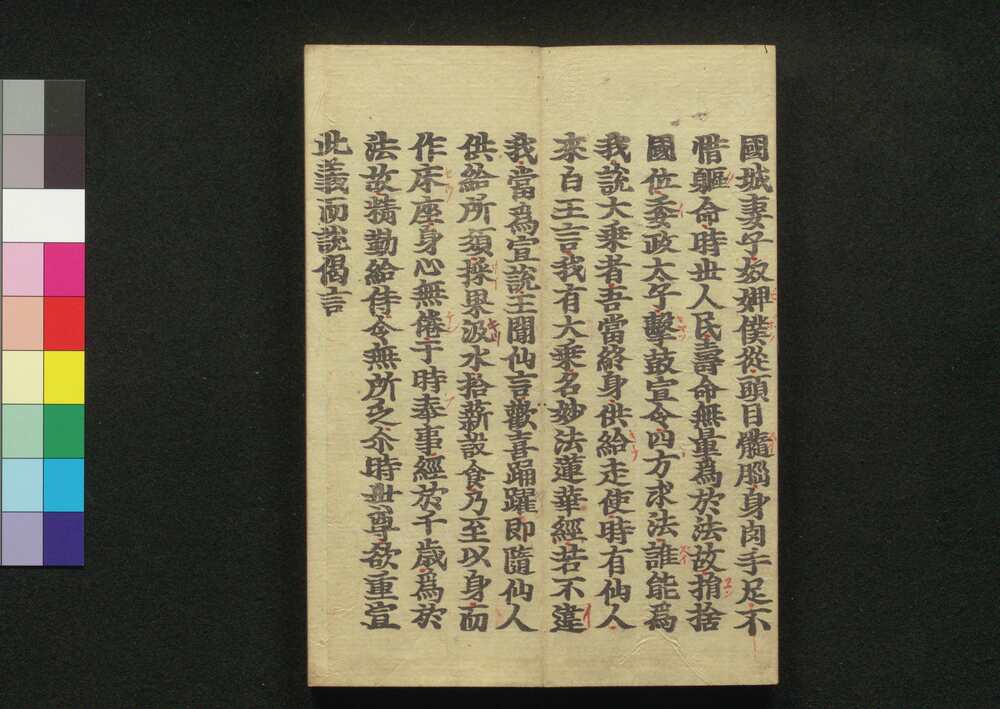 國城妻子奴婢僕從頭目髓腦身肉手足不
惜軀命時世人民壽命無量爲於法故捐捨
國位委政太子擊鼓宣令四方求法誰能爲
我說大乘者吾當終身供給走使時有仙人
來白王言我有大乘名妙法蓮華經若不違
我當爲宣說王聞仙言歡喜踊躍即隨仙人
供給所須採果汲水拾薪設食乃至以身而
作床座身心無倦于時奉事經於千歲爲於
法故精勤給侍令無所乏尒時世尊欲重宣
此義而說偈言